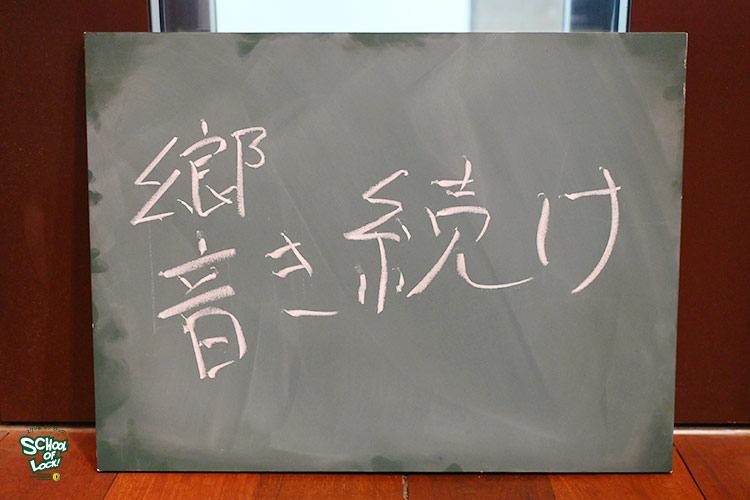 響き続け
SCHOOL
OF
LOCK!